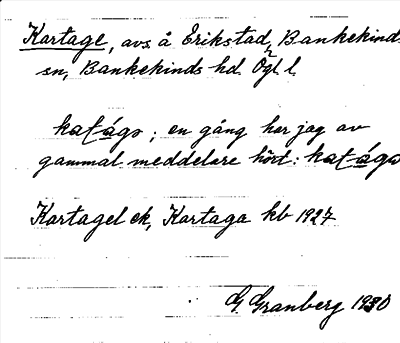 Kartage, avs å Erikstad, Bankekinds
sn, Bankekinds hd Ögl l
katágo; en gång har jag av
gammal meddelare hört: katágo
Kartagel ek, Kartaga kb 1927
G. Granberg 1930